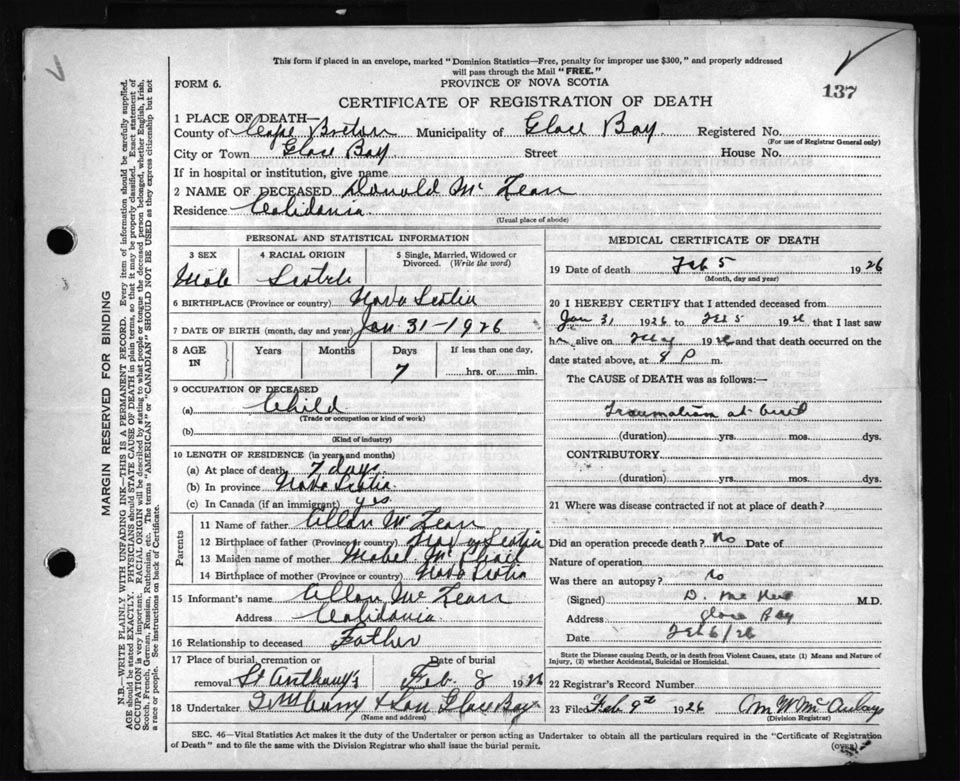 This form if placed in an envelope, marked "Dominion Statistics—Free, penalty for improper use $300," and properly addressed
will pass through the Mail "FREE."
FORM 6.
PROVINCE OF NOVA SCOTIA
137
CERTIFICATE OF REGISTRATION OF DEATH
1 PLACE OF DEATH—
County of Cape Breton Municipality of Glace Bay Registered No.
(For use of Registrar General only)
City or Town Glace Bay Street House No.
If in hospital or institution, give name
2 NAME OF DECEASED Donald Mc Lean
Residence Calidonia
(Usual place of abode)
PERSONAL AND STATISTICAL INFORMATION
3 SEX 4 RACIAL ORIGIN 5 Single, Married, Widowed or Divorced. (Write the word)
Male Scotch
6 BIRTHPLACE (Province or country) Nova Scotia
7 DATE OF BIRTH (month, day and year) Jan 31-1926
8 AGE IN Years Months Days If less than one day,
7 hrs. or min.
9 OCCUPATION OF DECEASED
(a) Child
(Trade or occupation or kind of work)
(b)
(Kind of industry)
10 LENGTH OF RESIDENCE (in years and months)
(a) At place of death 7 days
(b) In province Nova Scotia
(c) In Canada (if an immigrant) yes
Parents
11 Name of father Allan Mc Lean
12 Birthplace of father (Province or country) Nova Scotia
13 Maiden name of mother Mabel Mc
14 Birthplace of mother (Province or country) Nova Scotia
15 Informant's name Allan Mc Lean
Address Calidonia
16 Relationship to deceased Father
17 Place of burial, cremation or Date of burial
removal St Anthony's Feb. 8 1926
18 Undertaker & Son Glace Bay
(Name and address)
MEDICAL CERTIFICATE OF DEATH
19 Date of death Feb 5 1926
(Month, day and year)
20 I HEREBY CERTIFY that I attended deceased from
Jan 31 1926 to Feb 5 192 that I last saw
h alive on 192 and that death occurred on the
date stated above, at 8 P m.
The CAUSE of DEATH was as follows:—
Traumatism at
(duration) yrs. mos. dys.
CONTRIBUTORY
(duration) yrs. mos. dys.
21 Where was disease contracted if not at place of death?
Did an operation precede death? No Date of
Nature of operation
Was there an autopsy? No
(Signed) D. M.D.
Address Glace Bay
Date Feb 6/26
State the Disease causing Death, or in death from Violent Causes, state (1) Means and Nature of
Injury, (2) whether Accidental, Suicidal or Homicidal.
22 Registrar's Record Number
23 Filed Feb 9th 1926
(Division Registrar)
SEC. 46—Vital Statistics Act makes it the duty of the Undertaker or person acting as Undertaker to obtain all the particulars required in the "Certificate of Registration
of Death" and to file the same with the Division Registrar who shall issue the burial permit.
(OVER)
MARGIN RESERVED FOR BINDING
N.B.—WRITE PLAINLY WITH UNFADING INK—THIS IS A PERMANENT RECORD. Every item of information should be carefully supplied.
AGE should be stated EXACTLY. PHYSICIANS should STATE CAUSE OF DEATH in plain terms, so that it may be properly classified. Exact statement of
OCCUPATION is very important. RACIAL ORIGIN will be described by stating to what people or tongue the deceased person belonged, whether English, Irish,
Scotch, French, German, Russian, Ruthenian, etc. The terms "AMERICAN" or "CANADIAN" SHOULD NOT BE USED as they express citizenship but not
a race or people. See instructions on back of Certificate.